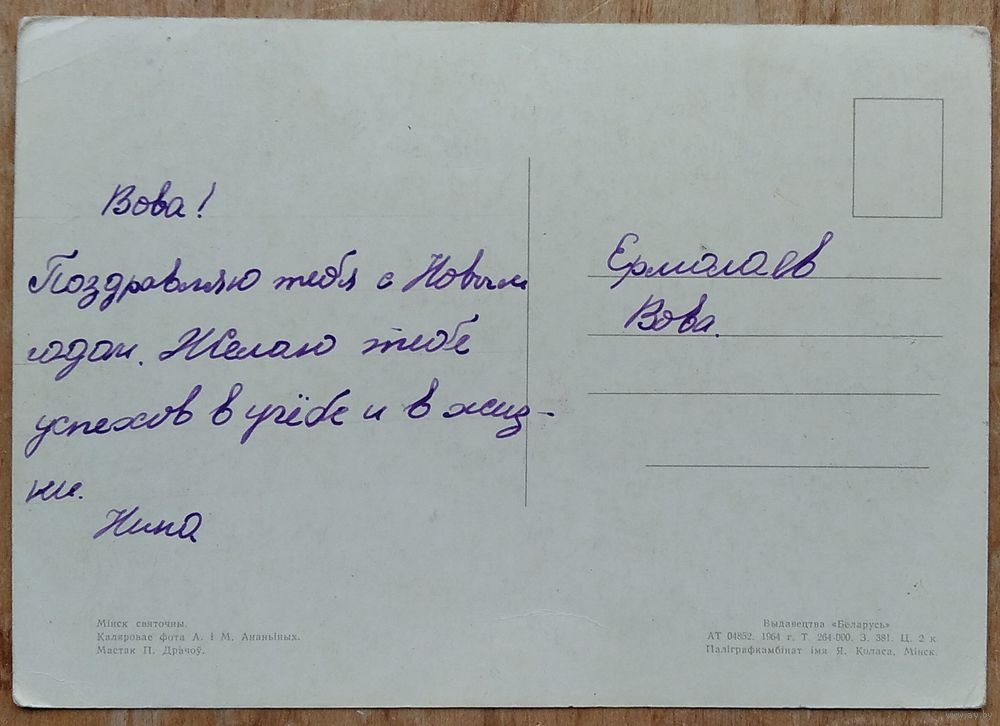 Вова!
Поздравляю тебя с Новым
годом. Желаю тебе
успехов в учёбе и в жиз-
ни.
Нина
Ермолаев
Вова.
Мінск святочны.
Каляровае фота А. і М. Ананьіных.
Мастак П. Драчоў.
Выдавецтва «Беларусь»
АТ 04852. 1964 г. Т. 264-000. З. 381. Ц. 2 к
Паліграфкамбінат імя Я. Коласа, Мінск.
www.ay.by